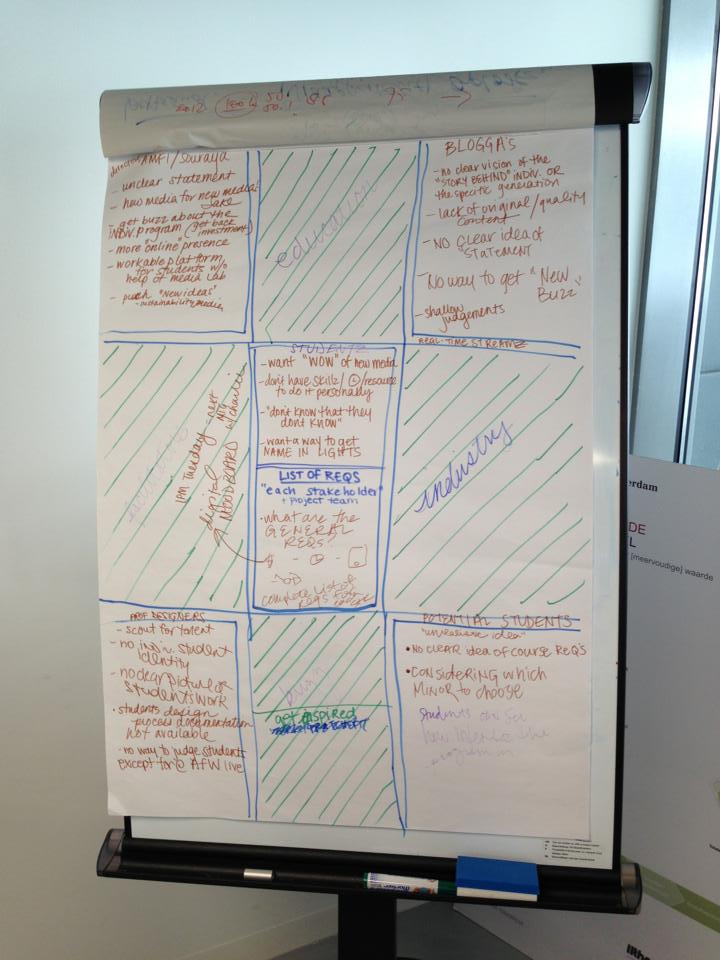 2012 100%
director AMFI / Souraya
- unclear statement
- how media for new media sake
- get buzz about the
INDIV. program (get back
investment)
- more "online" presence
- workable platform
for students w/o
help of media lab
- push "New ideas"
- sustainability/media
education
BLOGGA'S
- no clear vision of the
"STORY BEHIND" INDIV. OR
the specific generation
- lack of original/quality
content
- NO CLEAR idea of
"STATEMENT
- No way to get "New
Buzz
- shallow
judgements
REAL-TIME STREAMZ
1PM Tuesday - next
MTG
w/charlie
digital
MOODBOARD
STUDENTZ
- want "WOW" of new media
- don't have skillz/ /resource
to do it personally
- "don't know that they
dont know"
- want a way to get
NAME IN LIGHTS
LIST OF REQS
"each stakeholder"
+ project team
- what are the
GENERAL
REQS?
complete list of
REQS for
industry
PROF DESIGNERS
- scout for talent
- no indiv. student
identity
- no clear picture of
students work
- students design
process documentation
not available
- no way to judge students
except for @ AFW live
get inspired
POTENTIAL STUDENTS
idea"
• NO CLEAR idea of course REQ'S
• CONSIDERING which
MINOR to choose
Students can see
how the
program
erdam
DE
L
[meervoudig] waarde